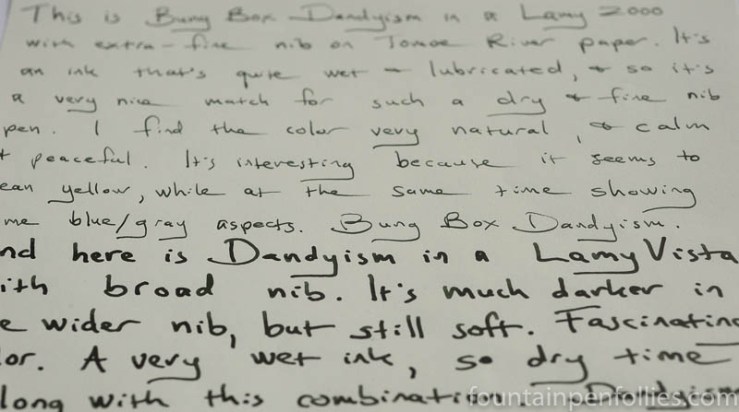 This is Bung Box Dandyism in a Lamy 2000
with extra-fine nib on Tomoe River paper. It's
an ink that's quite wet + lubricated, + so it's
a very nice match for such a dry + fine nib
pen. I find the color very natural, + calm
+ peaceful. It's interesting because it seems to
ean yellow, while at the same time showing
me blue/gray aspects. Bung Box Dandyism.
nd here is Dandyism in a Lamy Vista
ith broad nib. It's much darker in
e wider nib, but still soft. Fascinating
lor. A very wet ink, so dry time
long with this combination. Dandyism
fountainpenfollies.com